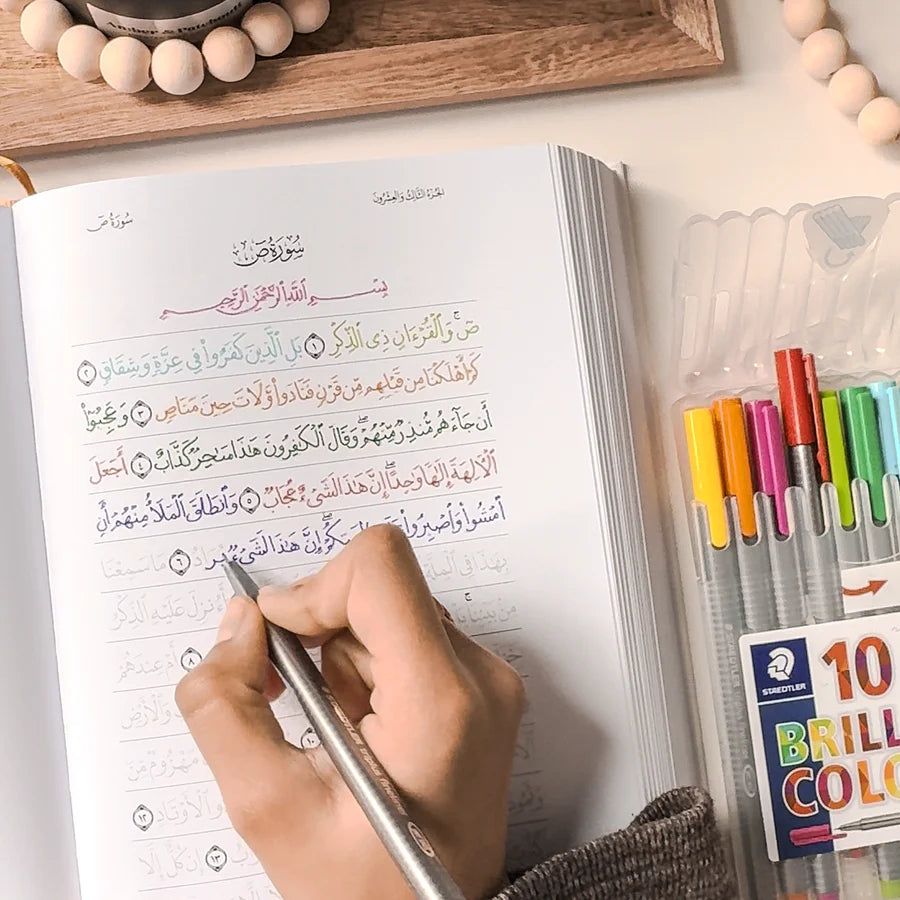 Amber & Patchouli
الجزء الثالث والعشرون
سورة ص
سورة ص
بِسْمِ ٱللَّهِ ٱلرَّحْمَٰنِ ٱلرَّحِيمِ
صٓ ۚ وَٱلْقُرْءَانِ ذِى ٱلذِّكْرِ ١ بَلِ ٱلَّذِينَ كَفَرُوا۟ فِى عِزَّةٍ وَشِقَاقٍ ٢
كَمْ أَهْلَكْنَا مِن قَبْلِهِم مِّن قَرْنٍ فَنَادَوا۟ وَّلَاتَ حِينَ مَنَاصٍ ٣ وَعَجِبُوٓا۟
أَن جَآءَهُم مُّنذِرٌ مِّنْهُمْ ۖ وَقَالَ ٱلْكَٰفِرُونَ هَٰذَا سَٰحِرٌ كَذَّابٌ ٤ أَجَعَلَ
ٱلْءَالِهَةَ إِلَٰهًا وَٰحِدًا ۖ إِنَّ هَٰذَا لَشَىْءٌ عُجَابٌ ٥ وَٱنطَلَقَ ٱلْمَلَأُ مِنْهُمْ أَنِ
ٱمْشُوا۟ وَٱصْبِرُوا۟ إِنَّ هَٰذَا لَشَىْءٌ يُرَادُ ٦ مَا سَمِعْنَا
بِهَٰذَا فِى ٱلْمِلَّةِ أَءُنزِلَ عَلَيْهِ ٱلذِّكْرُ
مِنۢ بَيْنِنَا ۚ ٨ أَمْ عِندَهُمْ
وَٱلْأَرْضِ
١٠ مَهْزُومٌ مِّنَ
ٱلْأَوْتَادِ ١٢
١٣ إِن كُلٌّ إِلَّا
STAEDTLER
10
BRILL
COLO